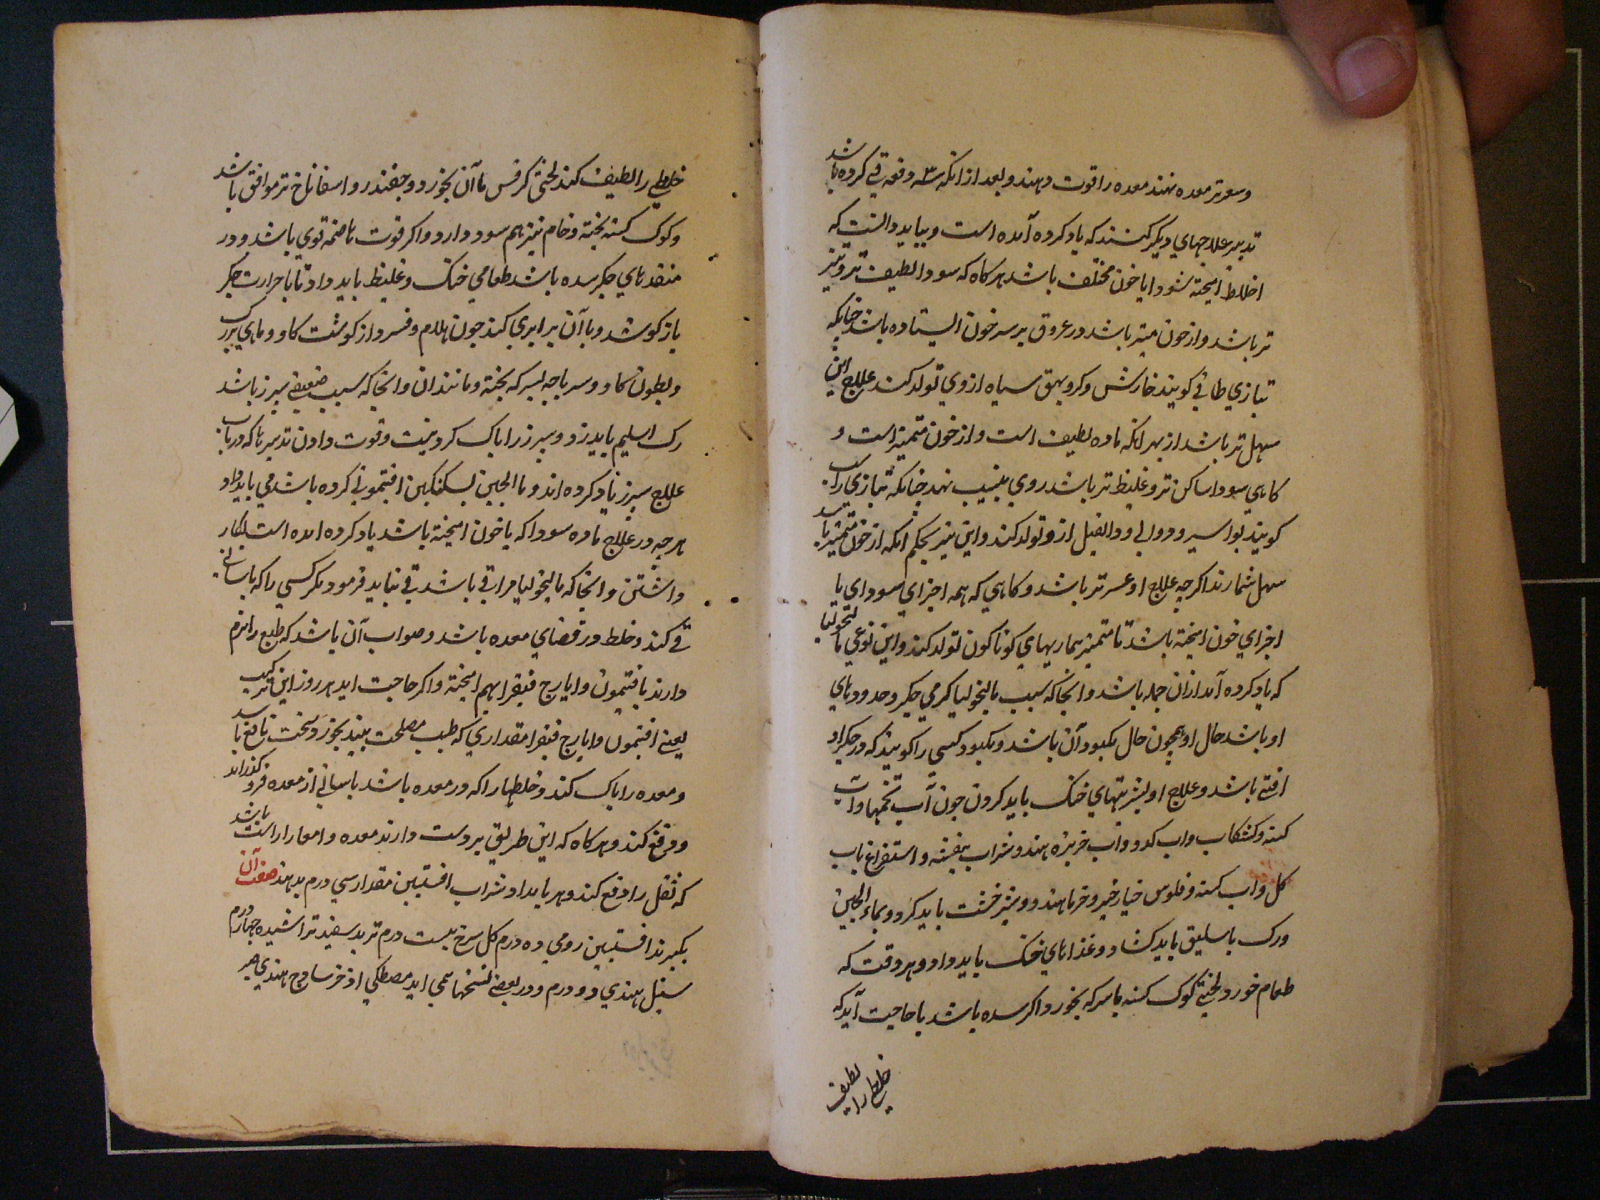 و سعوتر معده نهند معده را قوت دهند و بعد از انکه سه دفعه قی کرده باشد
تدبیر علاجهای دیگر کنند که یاد کرده آمده است و بباید دانست که
اخلاط امیخته شود ایا خون مختلف باشد هر کاه که سودا لطیف تر و تیز
تر باشد و از خون متمیز باشد در عروق بر سر خون ایستاده باشد چنانکه
تبازی طافی کویند خارش و کر و بهق سیاه از وی تولد کند علاج این
سهل تر باشد از بهر انکه ماده لطیف است و از خون متمیز است و
کاهی سودا ساکن تر و غلیظ تر باشد روی بنشیب نهد چنانکه تبازی راسب
کویند بواسیر و دوالی و داء الفیل از و تولد کند و این نیز بحکم انکه از خون متمیز باشد
سهل شمارند اکرچه علاج او عسر تر باشد و کاهی که همه اجزای سودای با
اجزای خون امیخته باشد نا متمیز بیماریهای کوناکون تولد کند و این نوعی مالنخولیا
که یاد کرده آمد از ان جمله باشد و انجا که سبب مالیخولیا کرمی جکر و حدودهای
او باشد حال او همچون حال مکبود آن باشد و مکبود کسی را کویند که در جکر او
افتی باشد و علاج او بشربتهای خنک باید کردن چون آب تخمها و آب
کسنه و کشکاب و اب کدو و اب خربزه هندو شراب بنفشه و استفراغ باب
کل و اب کسنه و فلوس خیار چنبر و خرما هندو و شیر خشت باید کرد و بماء الجبن
و رک باسلیق باید کشاد و غذاهای خنک باید داد و هر وقت که
طعام خورد لختی کوک کسنه بسرکه بخورد اکر سده باشد با حاجت آید که
خلطی را لطیف
خلطی را لطیف کند لختی کرفس با آن بخورد و چغندر و اسفاناخ تر موافق باشد
و کوک کسنه پخته و خام نیز هم سود دارد و اکر قوت هاضمه قوی باشد و در
منفذهای جکر سده باشد طعامی خنک و غلیظ باید داد تا با حرارت جکر
باز کوشد و با آن برابری کند چون هلام و فسرد از کوشت کاو و ماهی بزرک
و بطون کاو و سر باجه بسرکه پخته و مانند ان و انجا که سبب ضعیفی سپرز باشد
رک اسلیم باید زد و سپرز را پاک کردنیت و قوت دادن تدبیرها که در باب
علاج سپرز یاد کرده اند و ما الجبن بسکنکبین افتیمونی کرده باشد می باید داد
هر چه در علاج ماده سودا که با خون امیخته باشد یاد کرده امده است بکار
داشتن و انجا که مالیخولیا مراقی باشد قی نباید فرمود مکر کسی را که باسانی
قی کند و خلط در فضای معده باشد و صواب آن باشد که طبع را نرم
دارند بافتیمون و ایارج فیقرا بهم امیخته و اکر حاجت اید هر روز این ترکیب
یعنی افتیمون و ایارج فیقرا مقداری که طبیب مصلحت بیند بخورد سخت نافع باشد
و معده را پاک کند و خلطها را که در معده باشد باسانی از معده فرو کذراند
و دفع کند و هر کاه که این طریق بردست دارند معده و امعا را راست باشد
که ثفل را دفع کند و هر بامداد شراب افسنتین مقدار سی درم بدهند صفت آن
بکیرند افسنتین رومی ده درم کل سرخ بیست درم تربد سفید تراشیده چهار درم
سنبل هندی دو درم و در بعضی نسخها می اید مصطکی اذخر ساذج هندی هر